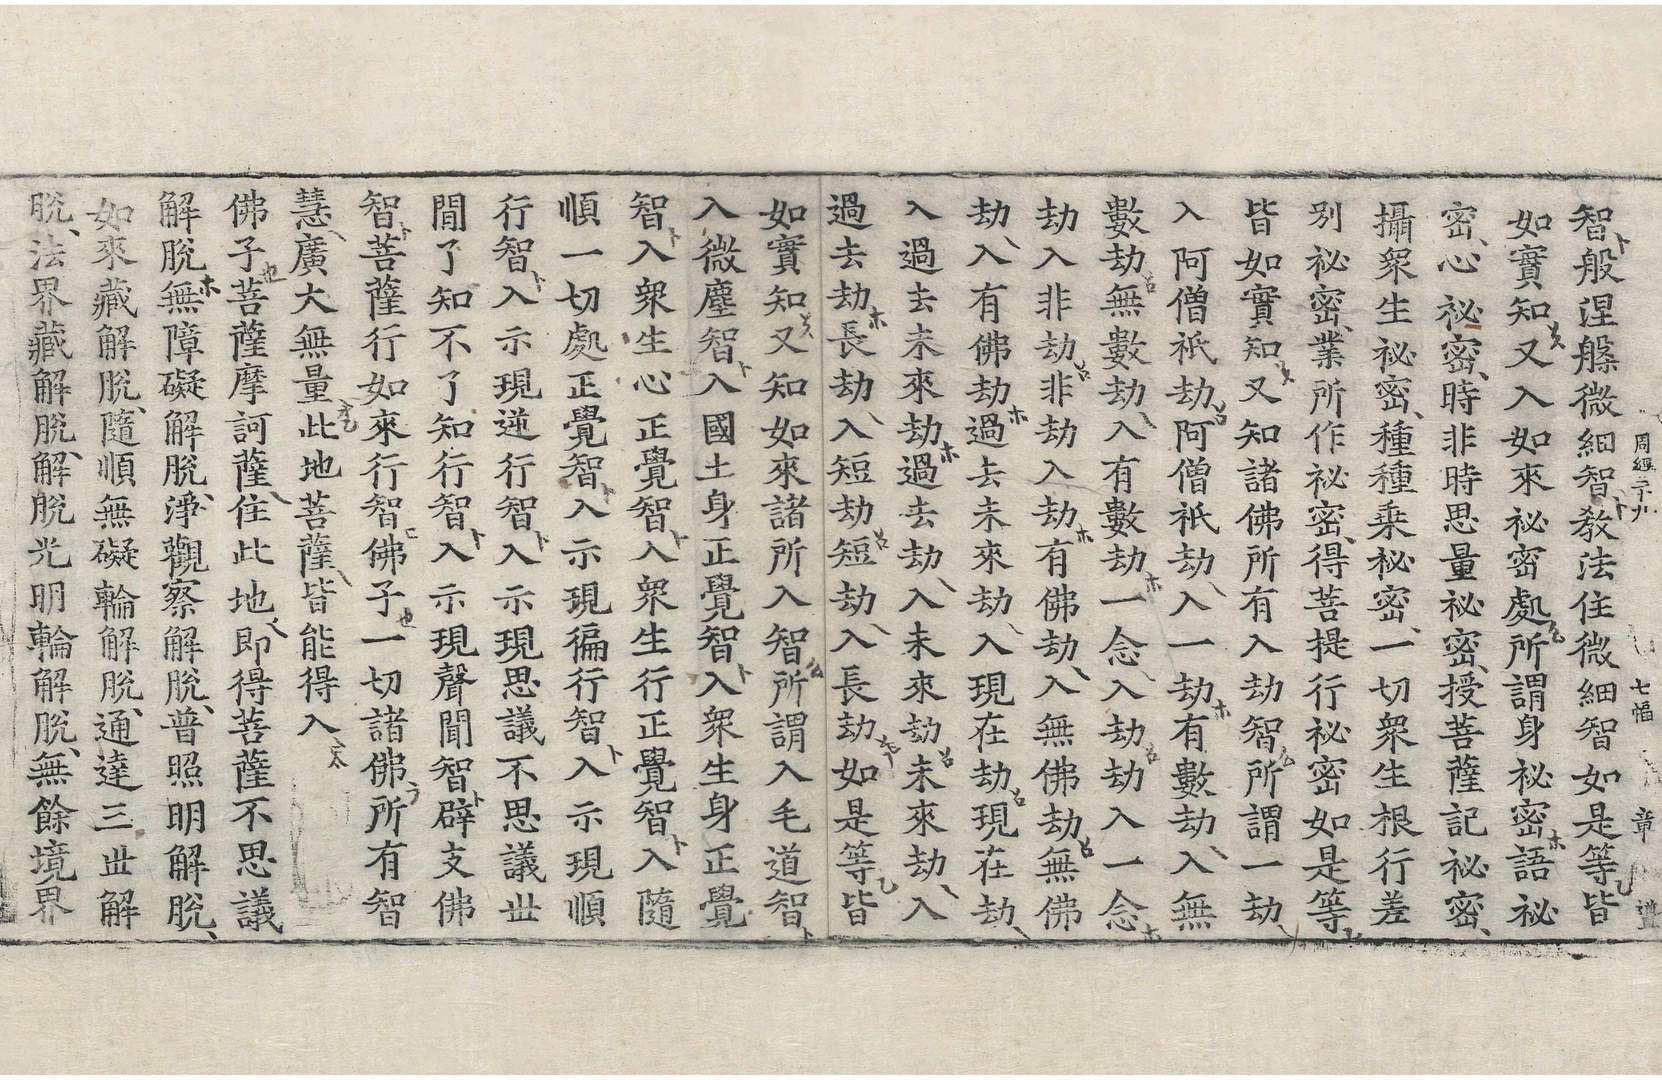 周經三十九 七幅 章 遵
智般涅槃微細智教法住微細智如是等皆
如實知又入如來祕密處所謂身祕密語祕
密心祕密時非時思量祕密授菩薩記祕密
攝衆生祕密種種乗祕密一切衆生根行差
别祕密業所作祕密得菩提行祕密如是等
皆如實知又知諸佛所有入劫智所謂一劫
入阿僧祇劫阿僧祇劫入一劫有數劫入無
數劫無數劫入有數劫一念入劫劫入一念
劫入非劫非劫入劫有佛劫入無佛劫無佛
劫入有佛劫過去未來劫入現在劫現在劫
入過去未來劫過去劫入未來劫未來劫入
過去劫長劫入短劫短劫入長劫如是等皆
如實知又知如來諸所入智所謂入毛道智
入微塵智入國土身正覺智入衆生身正覺
智入衆生心正覺智入衆生行正覺智入隨
順一切處正覺智入示現徧行智入示現順
行智入示現逆行智入示現思議不思議世
間了知不了知行智入示現聲聞智辟支佛
智菩薩行如來行智佛子一切諸佛所有智
慧廣大無量此地菩薩皆能得入
佛子菩薩摩訶薩住此地即得菩薩不思議
解脫無障礙解脫淨觀察解脫普照明解脫
如來藏解脫隨順無礙輪解脫通達三世解
脫法界藏解脫解脫光明輪解脫無餘境界